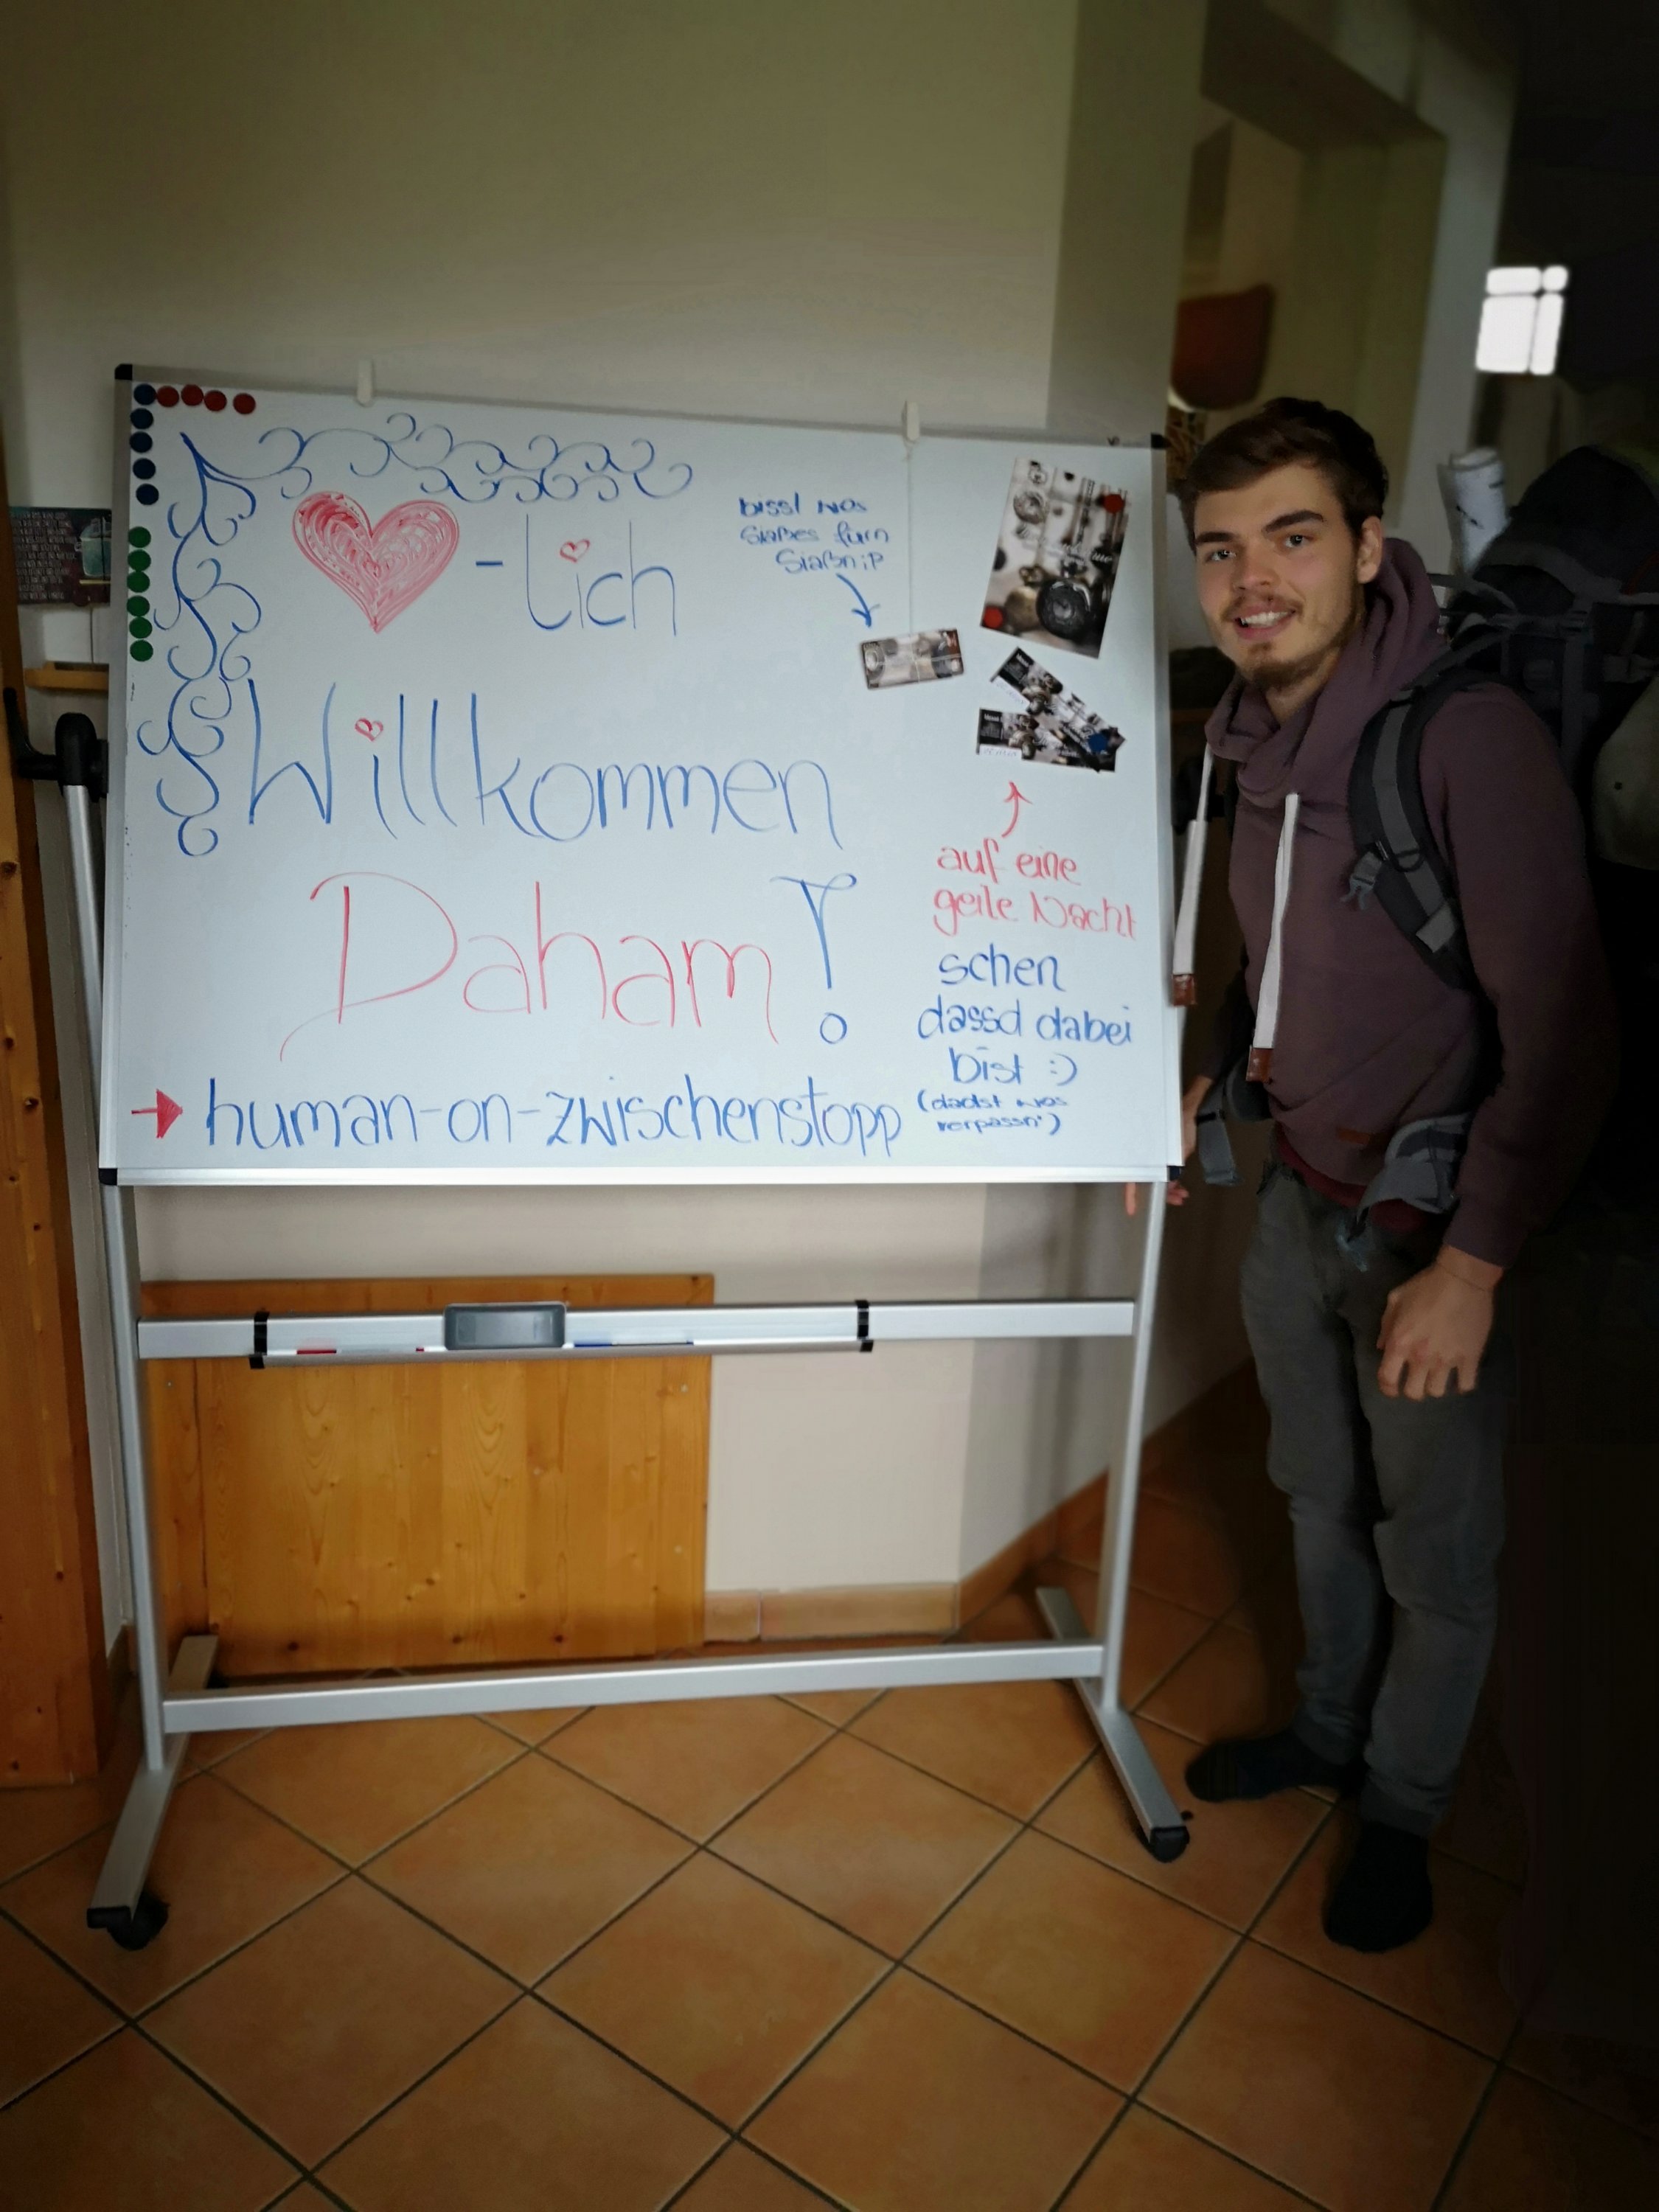 -lich
Willkommen
Daham!
→ human-on-zwischenstopp
bissl wos
Siaßes fürn
Siaßn :P
auf eine
geile Nacht
schen
dassd dabei
bist :)
(dadst wos
verpassn')